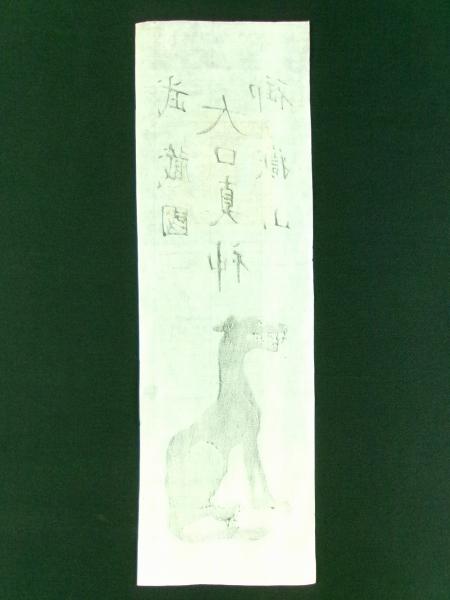 武藏國
大口真神
御嶽山